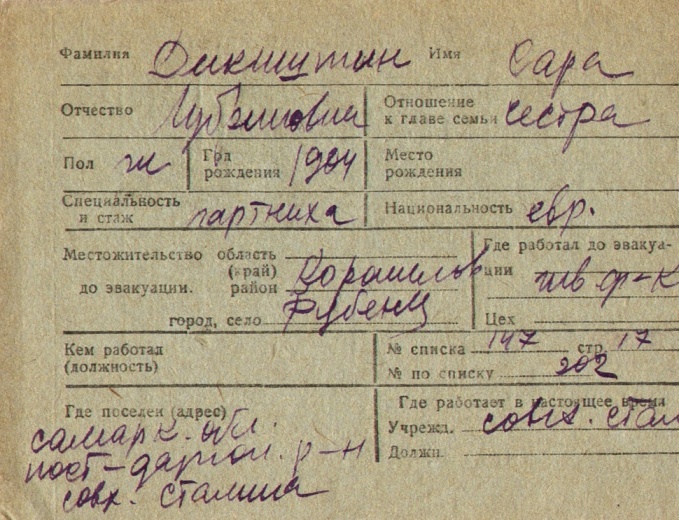 Фамилия Дикштин Имя Сара
Отчество Отношение к главе семьи сестра
Пол ж Год рождения 1904 Место рождения
Специальность и стаж Национальность евр.
Местожительство до эвакуации. область (край) район Ворошилов
город, село Рубеж
Где работал до эвакуации шв ф-к
Цех
Кем работал (должность) № списка 147 стр. 17
№ по списку 202
Где поселен (адрес) Где работает в настоящее время
самарк. обл. Учрежд. совх. стал
пост-даргом. р-н Должн.
совх. Сталина